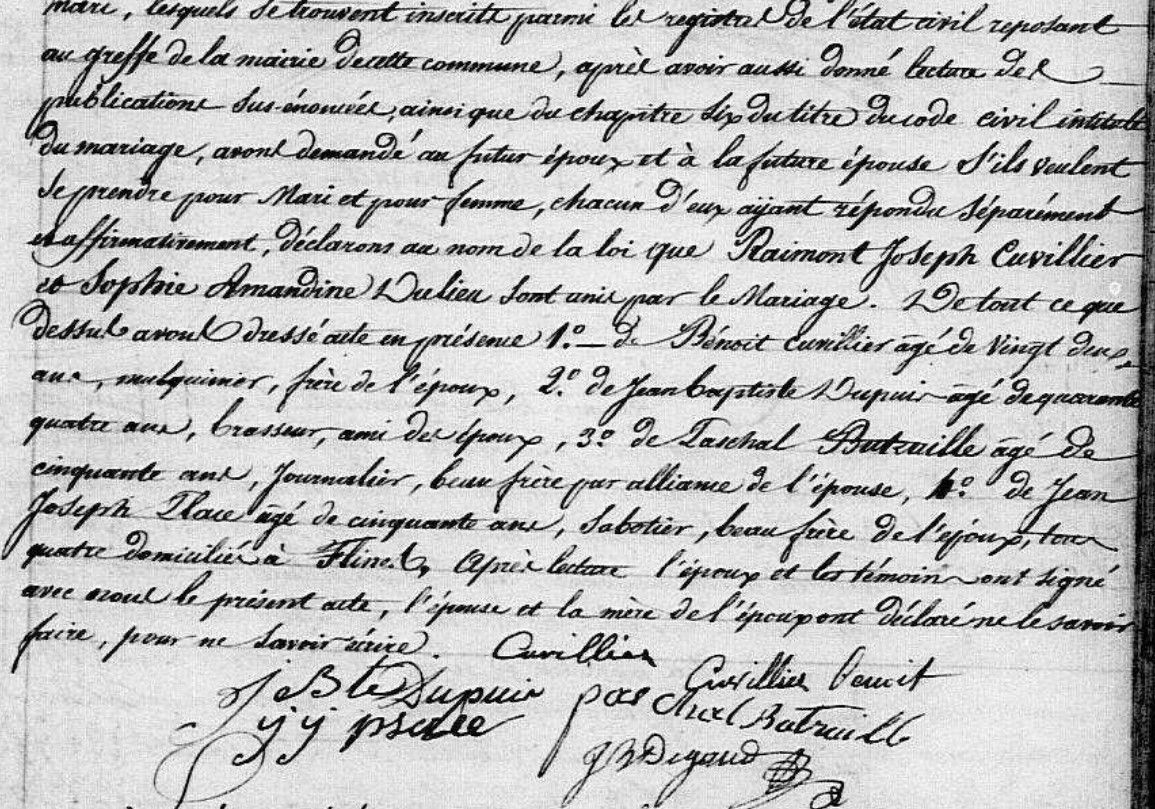 mari, lesquels se trouvent inscrits parmi les registres de l'état civil reposant
au greffe de la mairie de cette commune, après avoir aussi donné lecture des
publications sus-énoncées, ainsi que du chapitre six du titre du code civil intitulé
du mariage, avons demandé au futur époux et à la future épouse s'ils veulent
se prendre pour Mari et pour femme, chacun d'eux ayant répondu séparément
et affirmativement, déclarons au nom de la loi que Raimont Joseph Cuvillier
et Sophie Amandine Dulieu sont unis par le Mariage. De tout ce que
dessus avons dressé acte en présence 1.° de Bénoit Cuvillier âgé de vingt deux
ans, mulquinier, frère de l'époux, 2.° de Jean baptiste Dupuis âgé de quarante
quatre ans, brasseur, ami des époux, 3.° de Paschal Butruille âgé de
cinquante ans, Journalier, beau frère par alliance de l'épouse, 4.° de Jean
Joseph Place âgé de cinquante ans, Sabotier, beau frère de l'époux, tous
quatre domiciliés à Flines, Après lecture l'époux et les témoins ont signé
avec nous le présent acte, l'épouse et la mère de l'époux ont déclaré ne le savoir
faire, pour ne savoir écrire. Cuvillier
J Bte Dupuis Cuvillier benoit
j j place paschal Butruille
J B Degaud